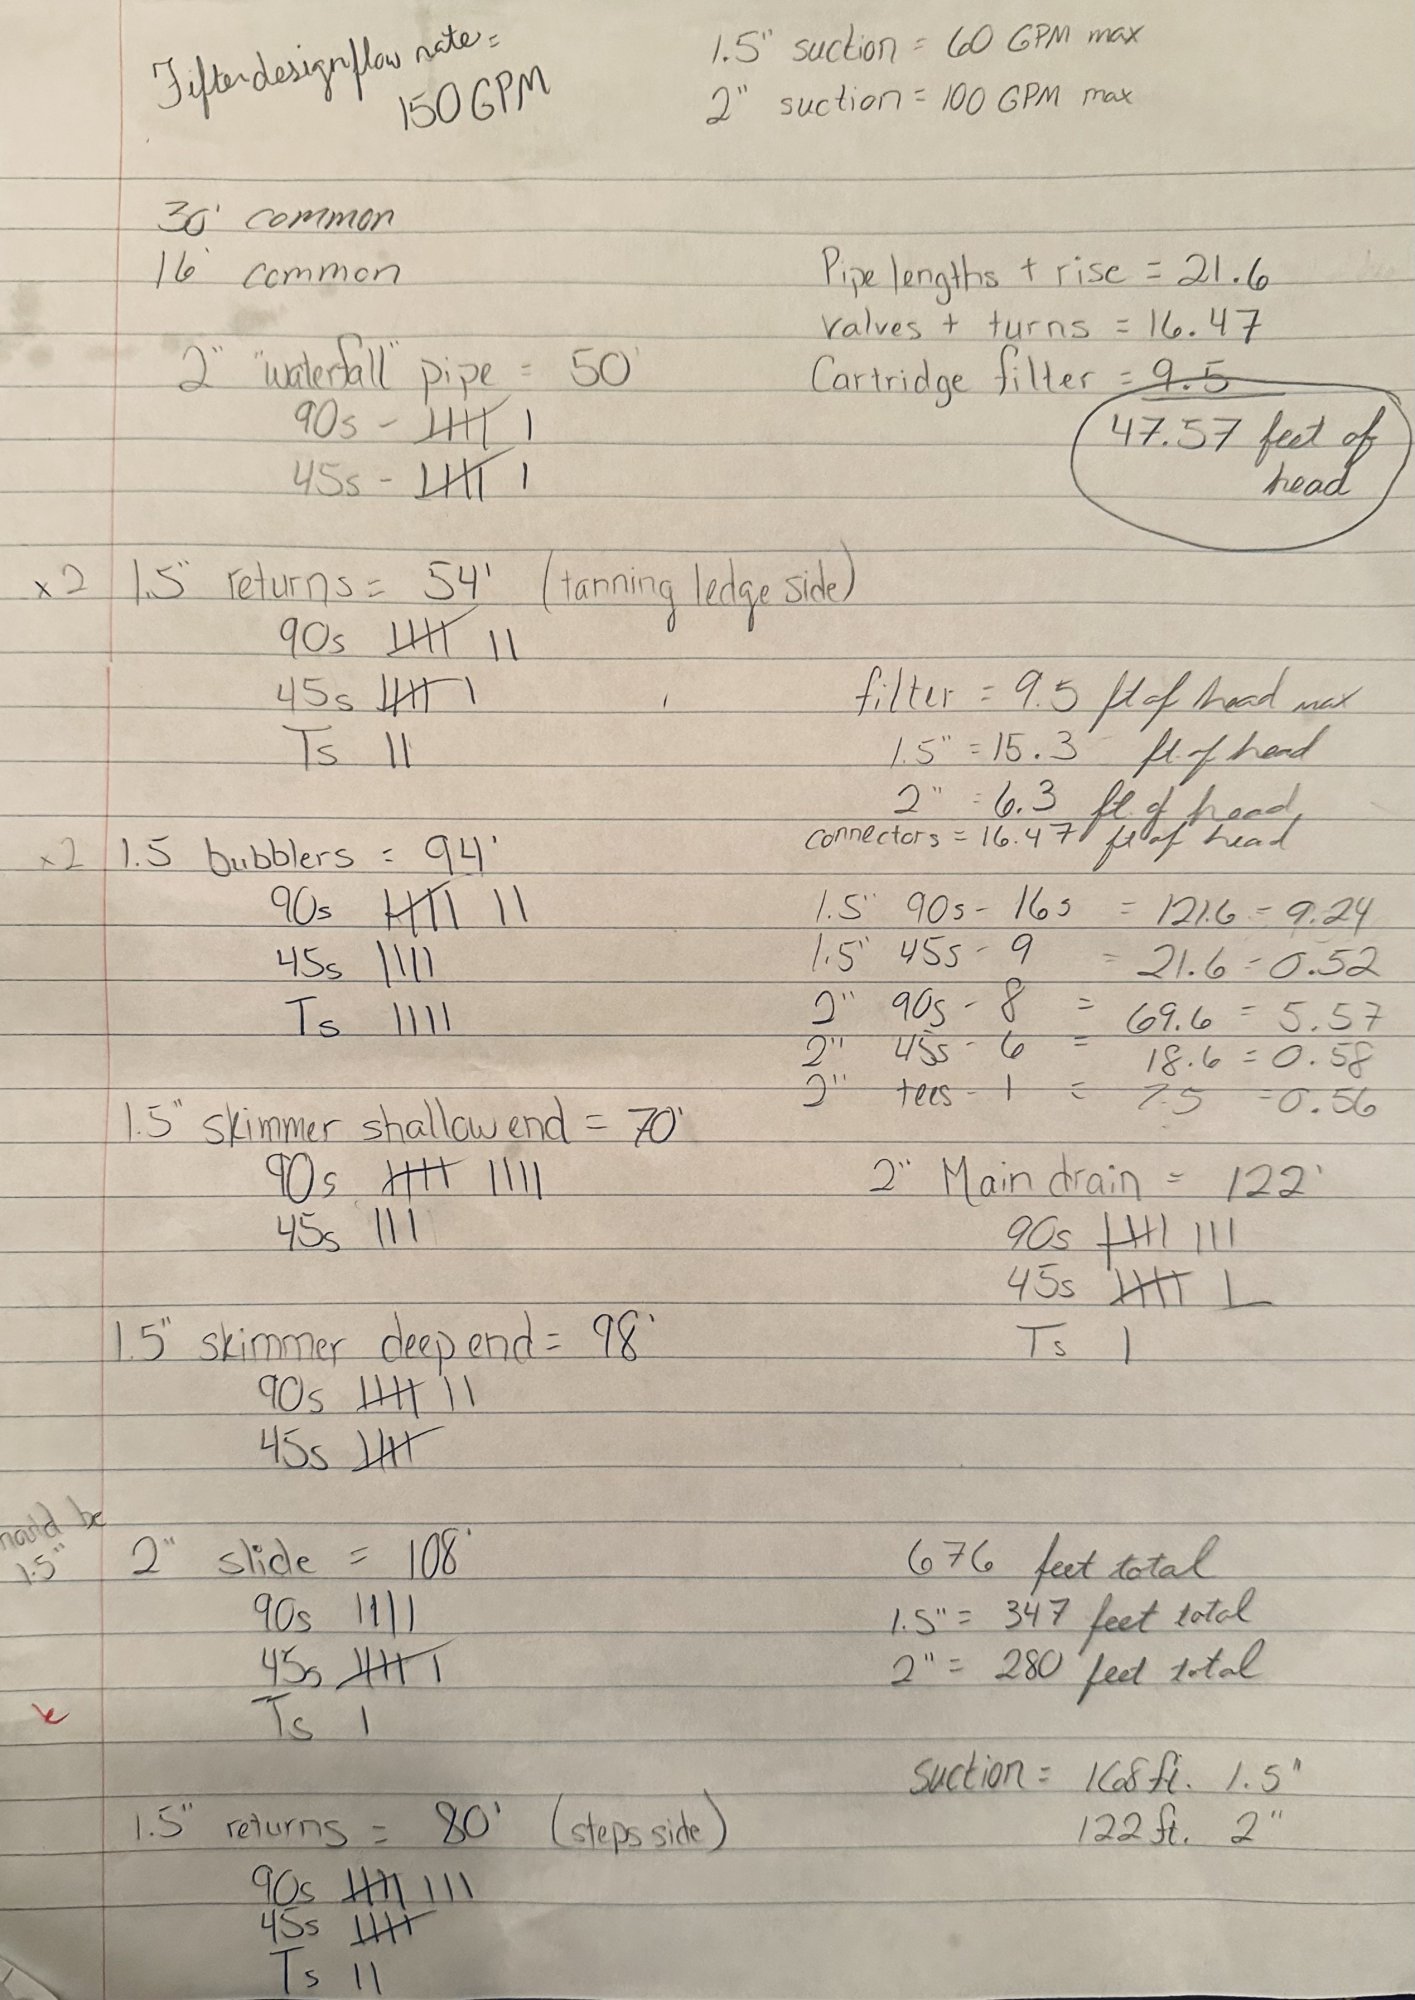 Filter design flow rate =
150 GPM
1.5" suction = 60 GPM max
2" suction = 100 GPM max
30' common
16' common
Pipe lengths + rise = 21.6
valves + turns = 16.47
Cartridge filter = 9.5
47.57 feet of
head
2" "waterfall" pipe = 50'
90s - 卌 |
45s - 卌 |
x2 1.5" returns = 54' (tanning ledge side)
90s 卌 ||
45s 卌 |
Ts ||
filter = 9.5 ft of head max
1.5" = 15.3 ft. of head
2" = 6.3 ft. of head
connectors = 16.47 ft of head
x2 1.5 bubblers = 94'
90s 卌 ||
45s ||||
Ts ||||
1.5" 90s - 16s = 121.6 = 9.24
1.5" 45s - 9 = 21.6 = 0.52
2" 90s - 8 = 69.6 = 5.57
2" 45s - 6 = 18.6 = 0.58
2" tees - 1 = 7.5 = 0.56
1.5" skimmer shallow end = 70'
90s 卌 ||||
45s |||
2" Main drain = 122'
90s 卌 |||
45s 卌 |
Ts |
1.5" skimmer deep end = 98'
90s 卌 ||
45s 卌
be
1.5"
2" slide = 108'
90s ||||
45s 卌 |
Ts |
676 feet total
1.5" = 347 feet total
2" = 280 feet total
suction = 168 ft. 1.5"
122 ft. 2"
1.5" returns = 80' (steps side)
90s 卌 |||
45s 卌
Ts ||